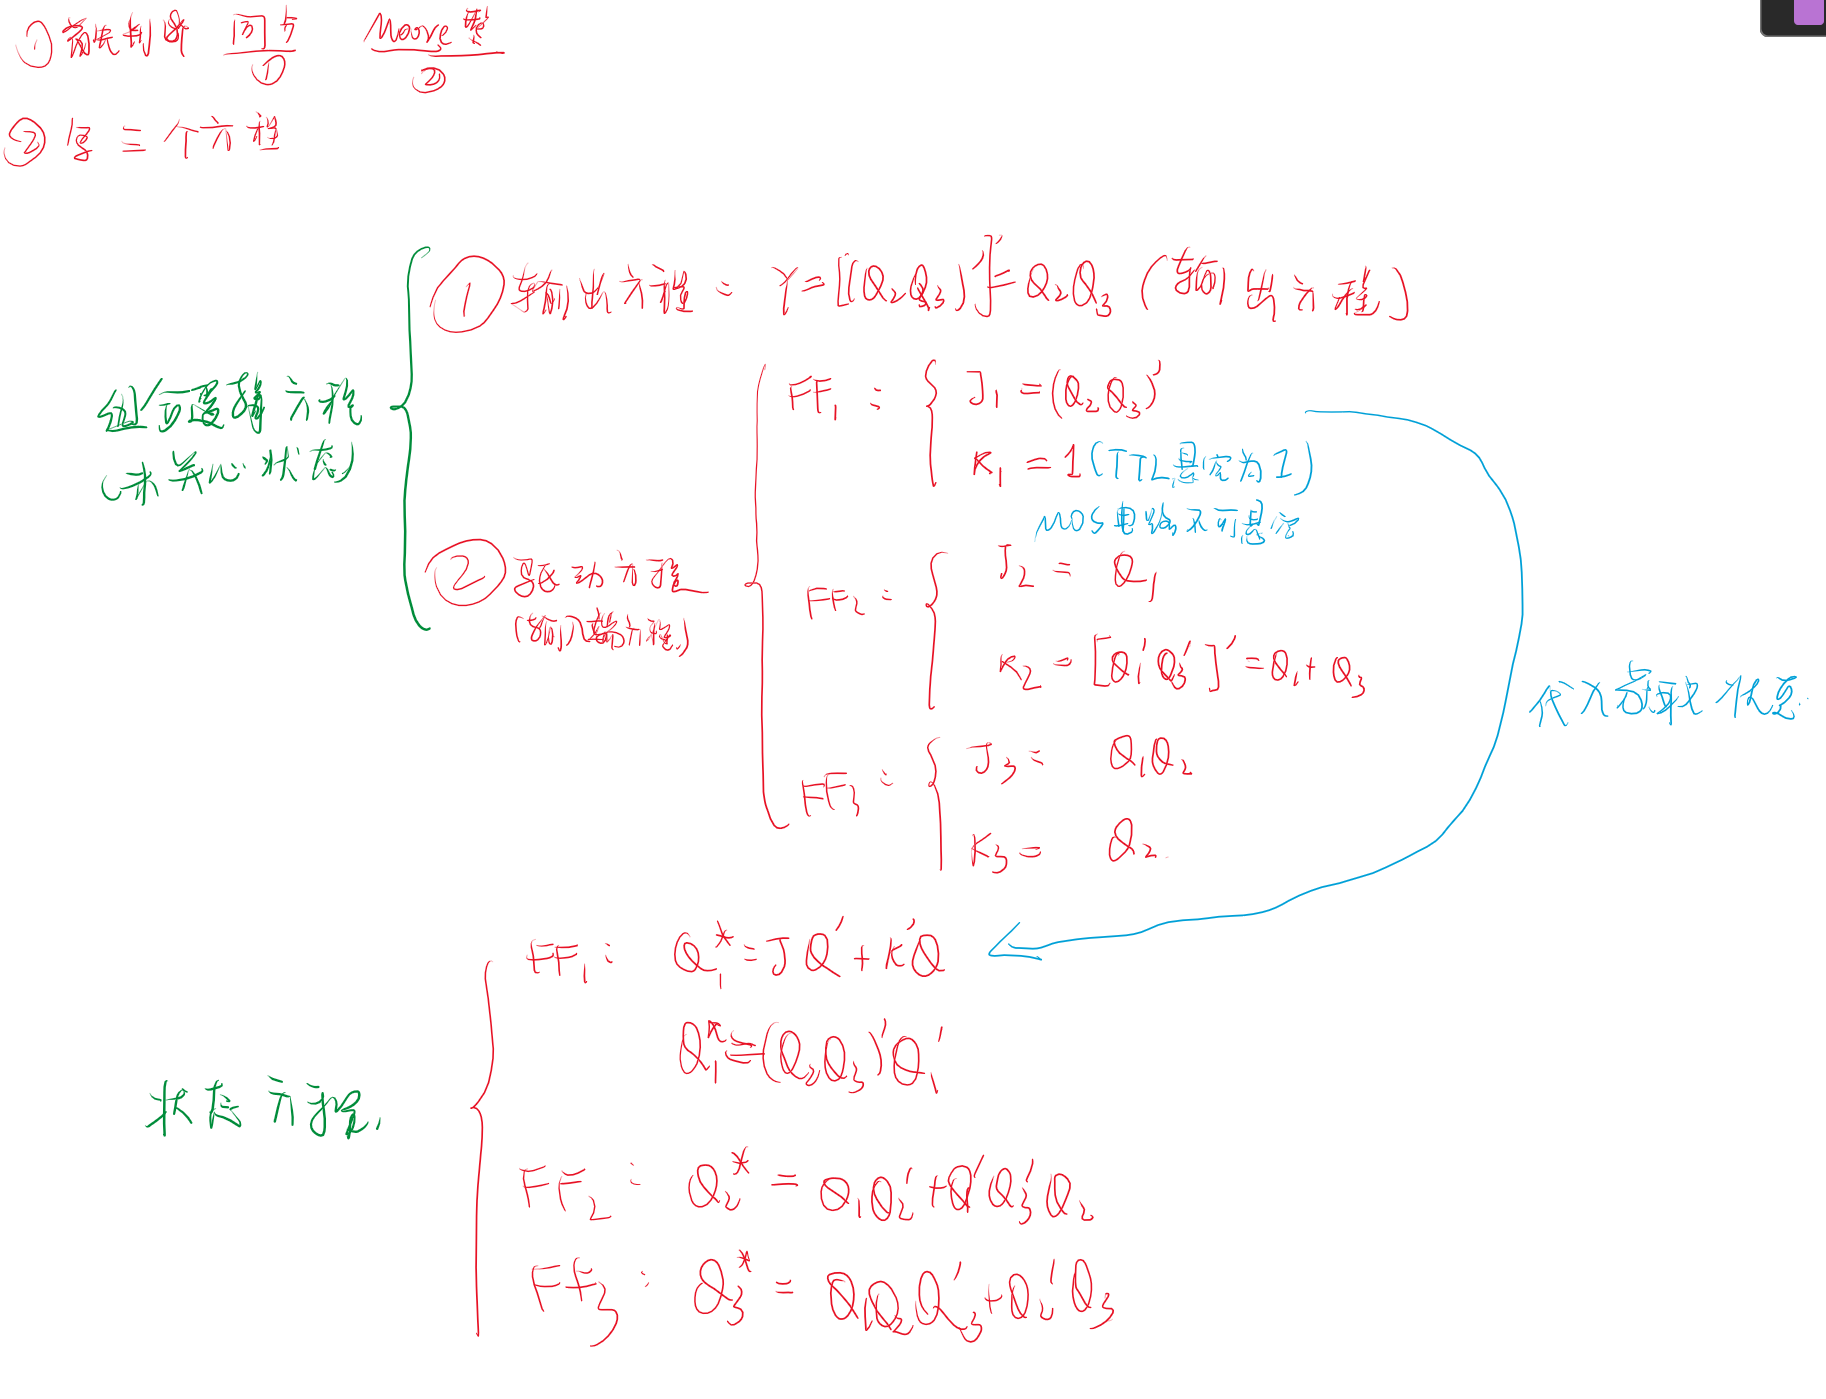 ① 首先判断 同步 Moore型
① ②
② 写三个方程
① 输出方程: Y=[(Q₂Q₃)']'=Q₂Q₃ (输出方程)
组合逻辑方程
(未关心状态)
② 驱动方程
(输入端方程)
FF₁: J₁=(Q₂Q₃)'
K₁=1(TTL悬空为1)
MOS电路不可悬空
FF₂: J₂= Q₁
K₂=[Q₁'Q₃']'=Q₁+Q₃
FF₃: J₃= Q₁Q₂
K₃= Q₂
代入获取状态
状态方程
FF₁: Q₁*=JQ'+K'Q
Q₁*=(Q₂Q₃)'Q₁'
FF₂: Q₂*=Q₁Q₂'+Q'Q₃'Q₂
FF₃: Q₃*=Q₁Q₂Q₃'+Q₂'Q₃